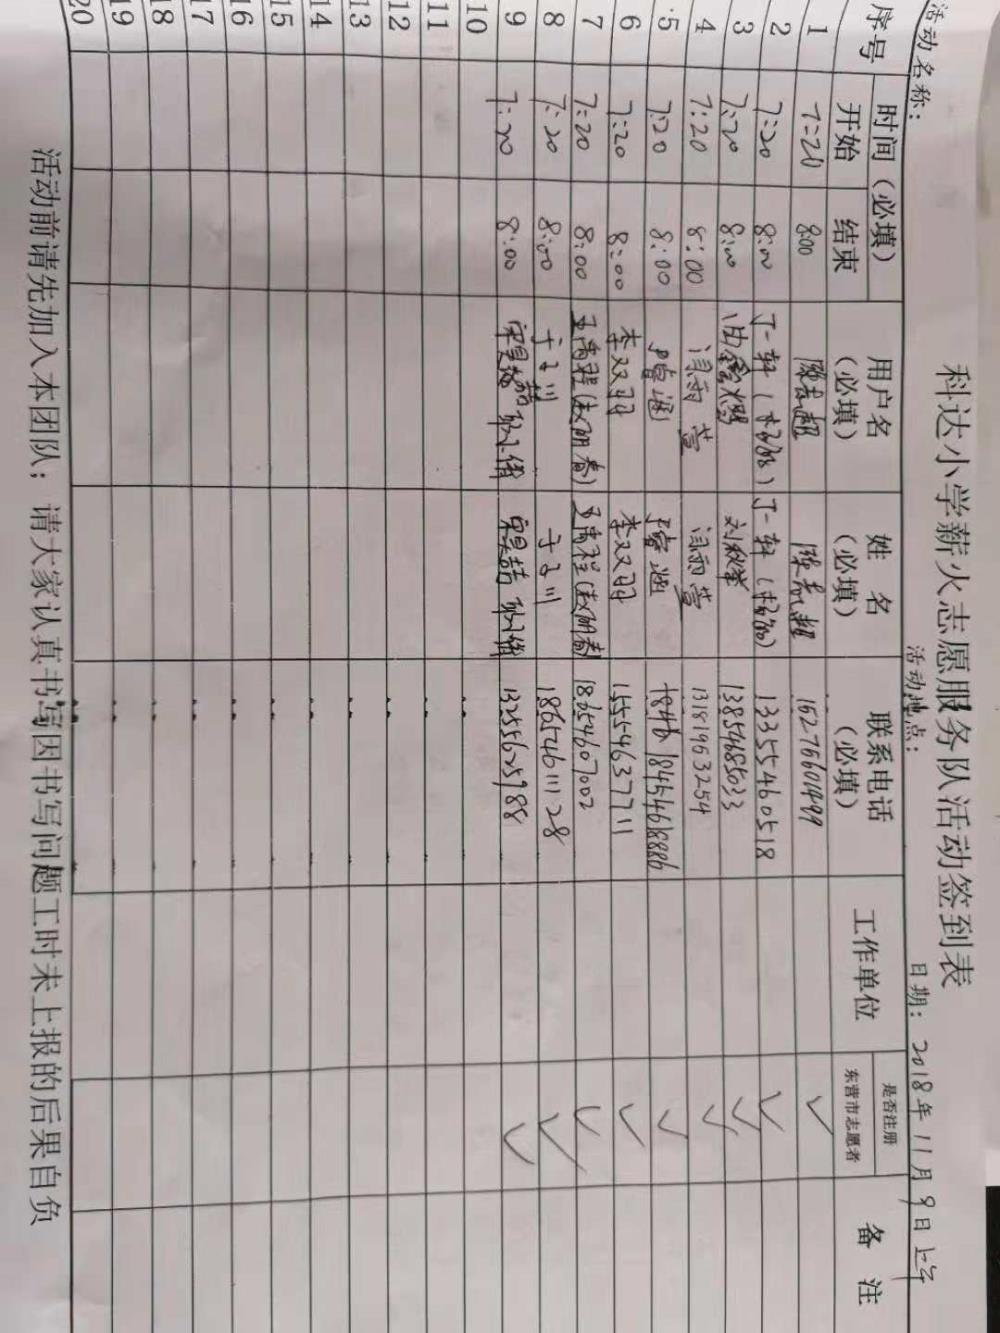 科达小学薪火志愿服务队活动签到表
活动名称： 活动地点： 日期：2018年11月9日上午
序号 时间（必填） 用户名（必填） 姓名（必填） 联系电话（必填） 工作单位 是否注册东营市志愿者 备注
开始 结束
1 7:20 8:00 陈志超 陈志超 15276601499 ✓
2 7:20 8:00 丁一轩 丁一轩 13355460518 ✓
3 7:20 8:00 刘秋 13854685033 ✓
4 7:20 8:00 闫雨萱 闫雨萱 13181963254 ✓
5 7:20 8:00 隋涵 隋涵 18454618886 ✓
6 7:20 8:00 李双羽 李双羽 15554637711 ✓
7 7:20 8:00 王禹程(赵丽春) 王禹程(赵丽春) 18654607002 ✓
8 7:20 8:00 于子川 于子川 18654611128 ✓
9 7:20 8:00 宋昊喆 宋昊喆 13255625988 ✓
10
11
12
13
14
15
16
17
18
19
20
活动前请先加入本团队；请大家认真书写因书写问题工时未上报的后果自负